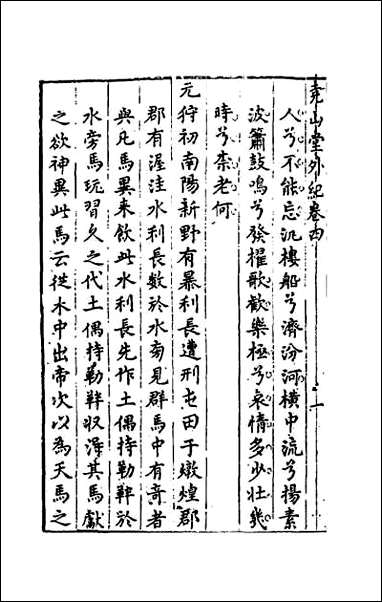 堯山堂外紀卷四
人兮不能忘汎樓船兮濟汾河橫中流兮揚素
波簫鼓鳴兮發櫂歌歡樂極兮哀情多少壯幾
時兮柰老何
元狩初南陽新野有暴利長遭刑屯田于燉煌郡
郡有渥洼水利長數於水旁見群馬中有奇者
與凡馬異来飲此水利長先作土偶持勒靽於
水旁馬玩習久之代土偶持勒靽収淂其馬獻
之欲神異此馬云從水中出帝次以為天馬之